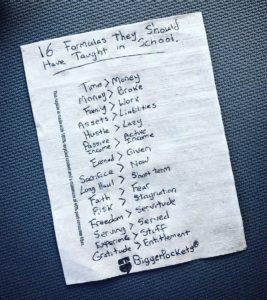 16 Formulas They Should
Have Taught in School.
Time > Money
Money > Broke
Family > Work
Assets > Liabilities
Hustle > Lazy
Passive Income > Active Income
Earned > Given
Sacrifice > Now
Long Haul > Short term
Faith > Fear
Risk > Stagnation
Freedom > Servitude
Serving > Served
Experience > Stuff
Gratitude > Entitlement
BiggerPockets®